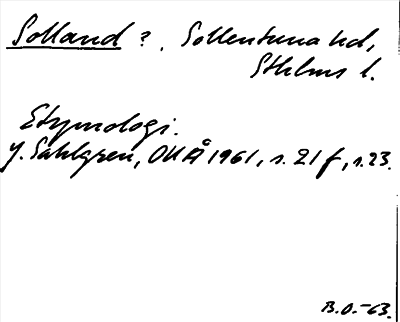 Solland ?. Sollentuna hd,
Sthlms l.
Etymologi.
J. Sahlgren, OUÅ 1961, s. 21 f, s. 23.
B.O.-63.